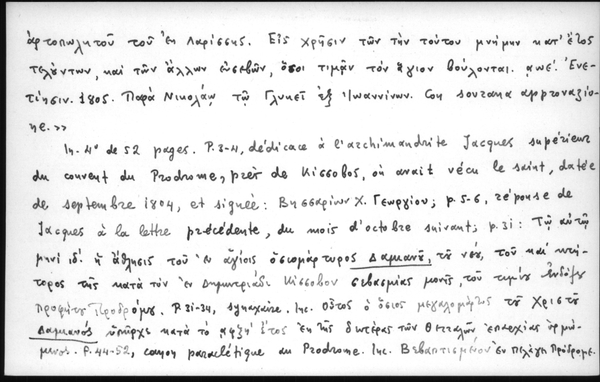 ἀρτοπωλητοῦ τοῦ ἐν Λαρίσσης. Εἰς χρῆσιν τῶν τὴν τούτου μνήμην κατ' ἔτος
τελούντων, καὶ τῶν ἄλλων εὐσεβῶν, ὅσοι τιμᾶν τὸν ἅγιον βούλονται. αωε'. Ἐνε-
τίησιν. 1805. Παρὰ Νικολάῳ τῷ Γλυκεῖ ἐξ Ἰωαννίνων. Con sovrana approvazio-
ne. >>
In-4° de 52 pages. P. 3-4, dédicace à l'archimandrite Jacques supérieur
du couvent du Prodrome, près de Κίσσοβος, où avait vécu le saint, datée
de septembre 1804, et signée: Βησσαρίων Χ. Γεωργίου; p. 5-6, réponse de
Jacques à la lettre précédente, du mois d'octobre suivant; p. 31: Τῷ αὐτῷ
μηνὶ ιδ'. ἡ ἄθλησις τοῦ ἐν ἁγίοις ὁσιομάρτυρος Δαμιανοῦ, τοῦ νέου, τοῦ καὶ κτή-
τορος τῆς κατὰ τὸν ἐν Δημητριάδι Κίσσοβον σεβασμίας μονῆς, τοῦ τιμίου ἐνδόξου
προφήτου Προδρόμου. P. 31-34, synaxaire. Inc. Οὗτος ὁ ὅσιος μεγαλομάρτυς τοῦ Χριστοῦ
Δαμιανός ὑπῆρχε κατὰ τὸ αφξη' ἔτος ἐκ τῆς δευτέρας τῶν Θετταλῶν ἐπαρχίας ὁρμώ-
μενος. P. 44-52, canon paraclétique au Prodrome. Inc. Βεβαπτισμένον ἐν πελάγη Πρόδρομε.